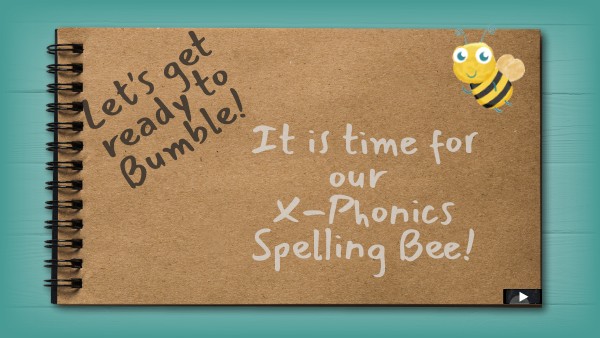 Let's get
ready to
Bumble!
It is time for
our
X-Phonics
Spelling Bee!